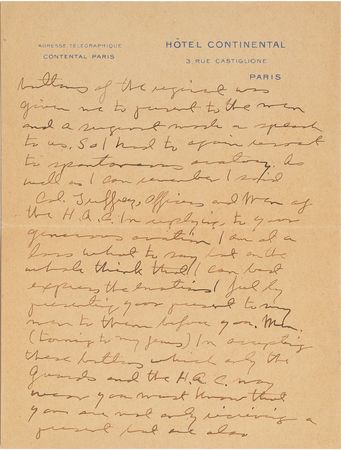 ADRESSE TÉLÉGRAPHIQUE
CONTENTAL-PARIS
HÔTEL CONTINENTAL
3 RUE CASTIGLIONE
PARIS
buttons of the regiment was
given me to present to the men
and a surgeant made a speech
to us. So I had to again resort
to spontaneous oratory. As
well as I can remember I said
Col. Treffry, Officers and Men of
the H.A.C. In replying to your
generous ovation I am at a
loss what to say but on the
whole think that I can best
express the emotions I feel by
presenting your present to my
men to them before you. Men.
(turning to my Jeunes) In accepting
these buttons which only the
Guards and the H.A.C. may
wear you must know that
you are not only receiving a
present but are also